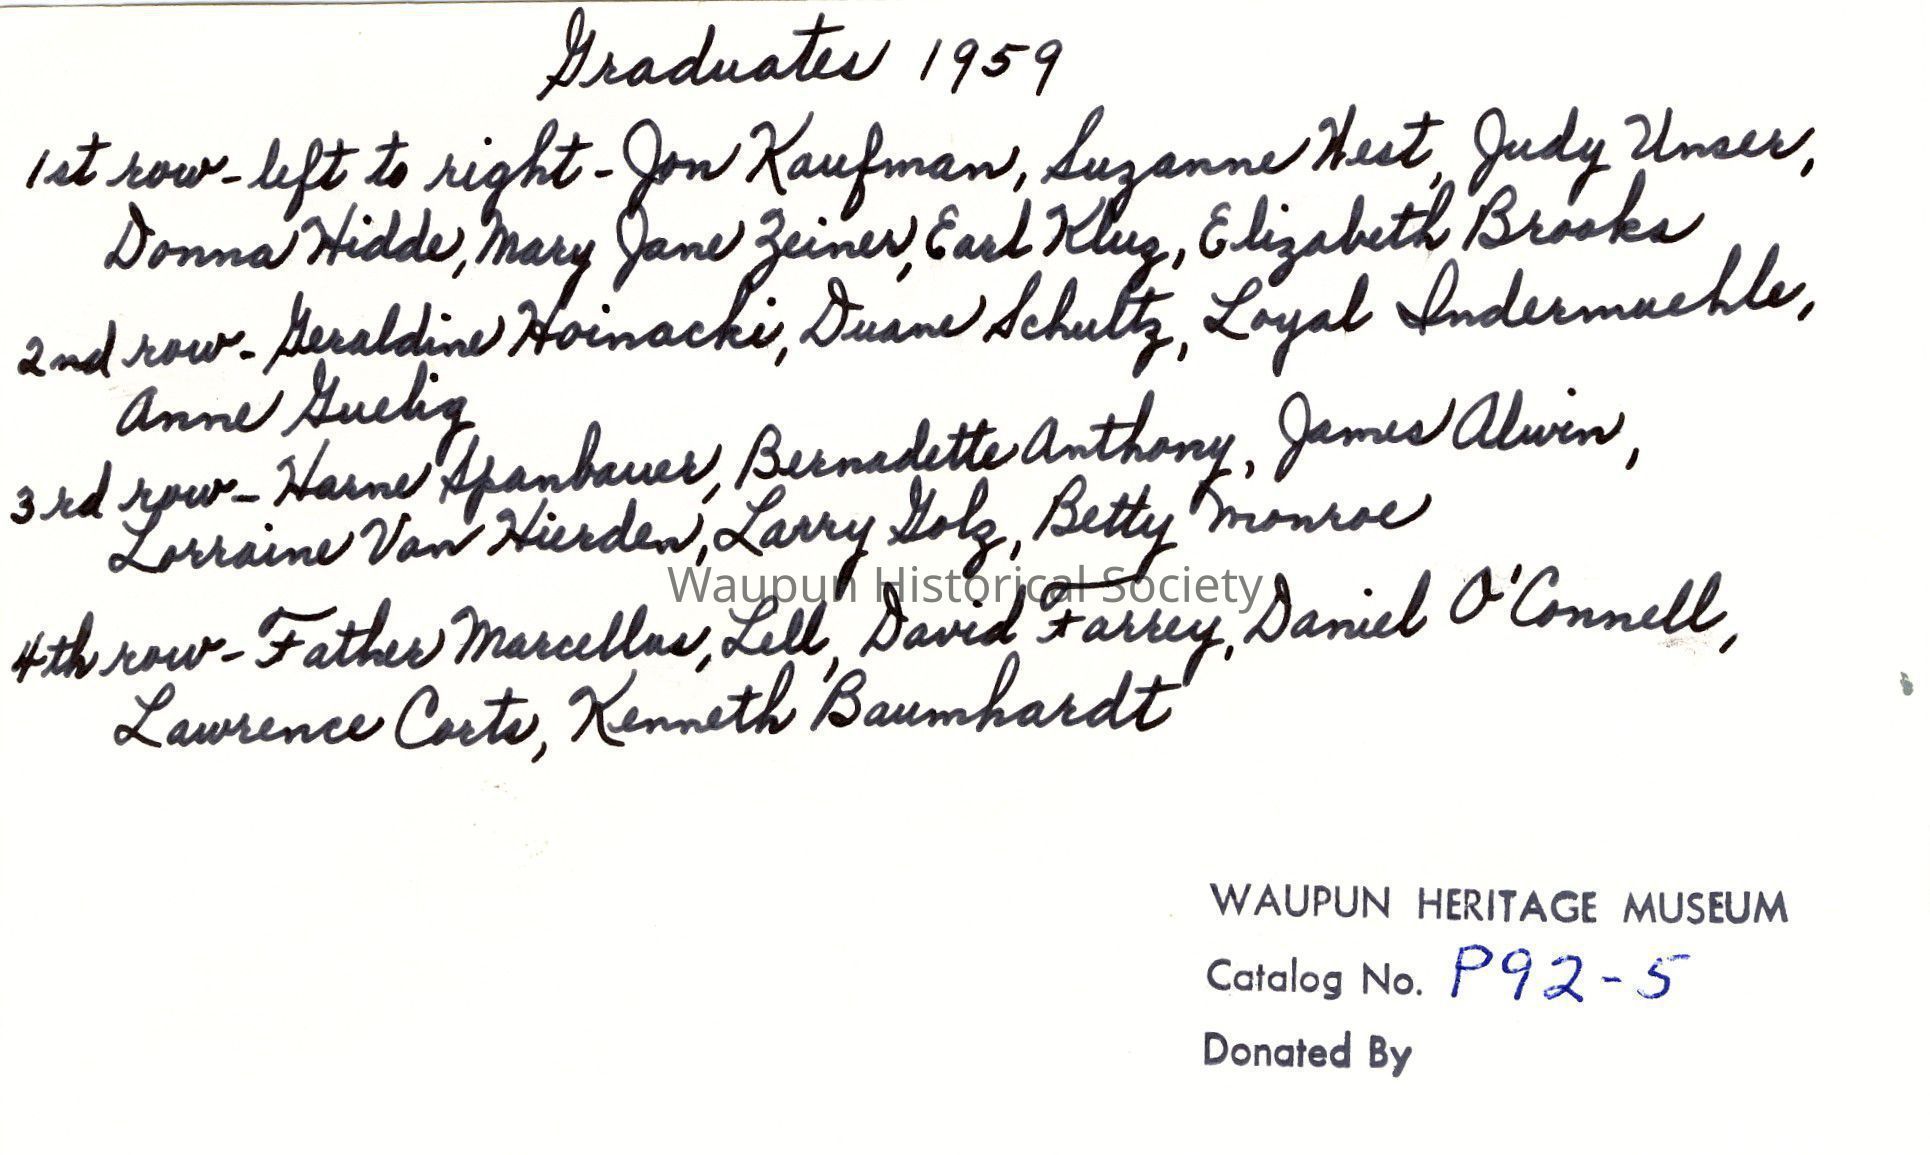 Graduates 1959
1st row - left to right - Jon Kaufman, Suzanne West, Judy Unser,
Donna Hidde, Mary Jane Zeiner, Earl Klug, Elizabeth Brooks
2nd row - Geraldine Hoinacki, Duane Schultz, Loyal Indermuehle,
Anne Guelig
3rd row - Harne Spanbauer, Bernadette Anthony, James Alwin,
Lorraine Van Hierden, Larry Golz, Betty Monroe
Waupun Historical Society
4th row - Father Marcellus, Lell, David Farrey, Daniel O'Connell,
Lawrence Corts, Kenneth Baumhardt
WAUPUN HERITAGE MUSEUM
Catalog No. P92-5
Donated By